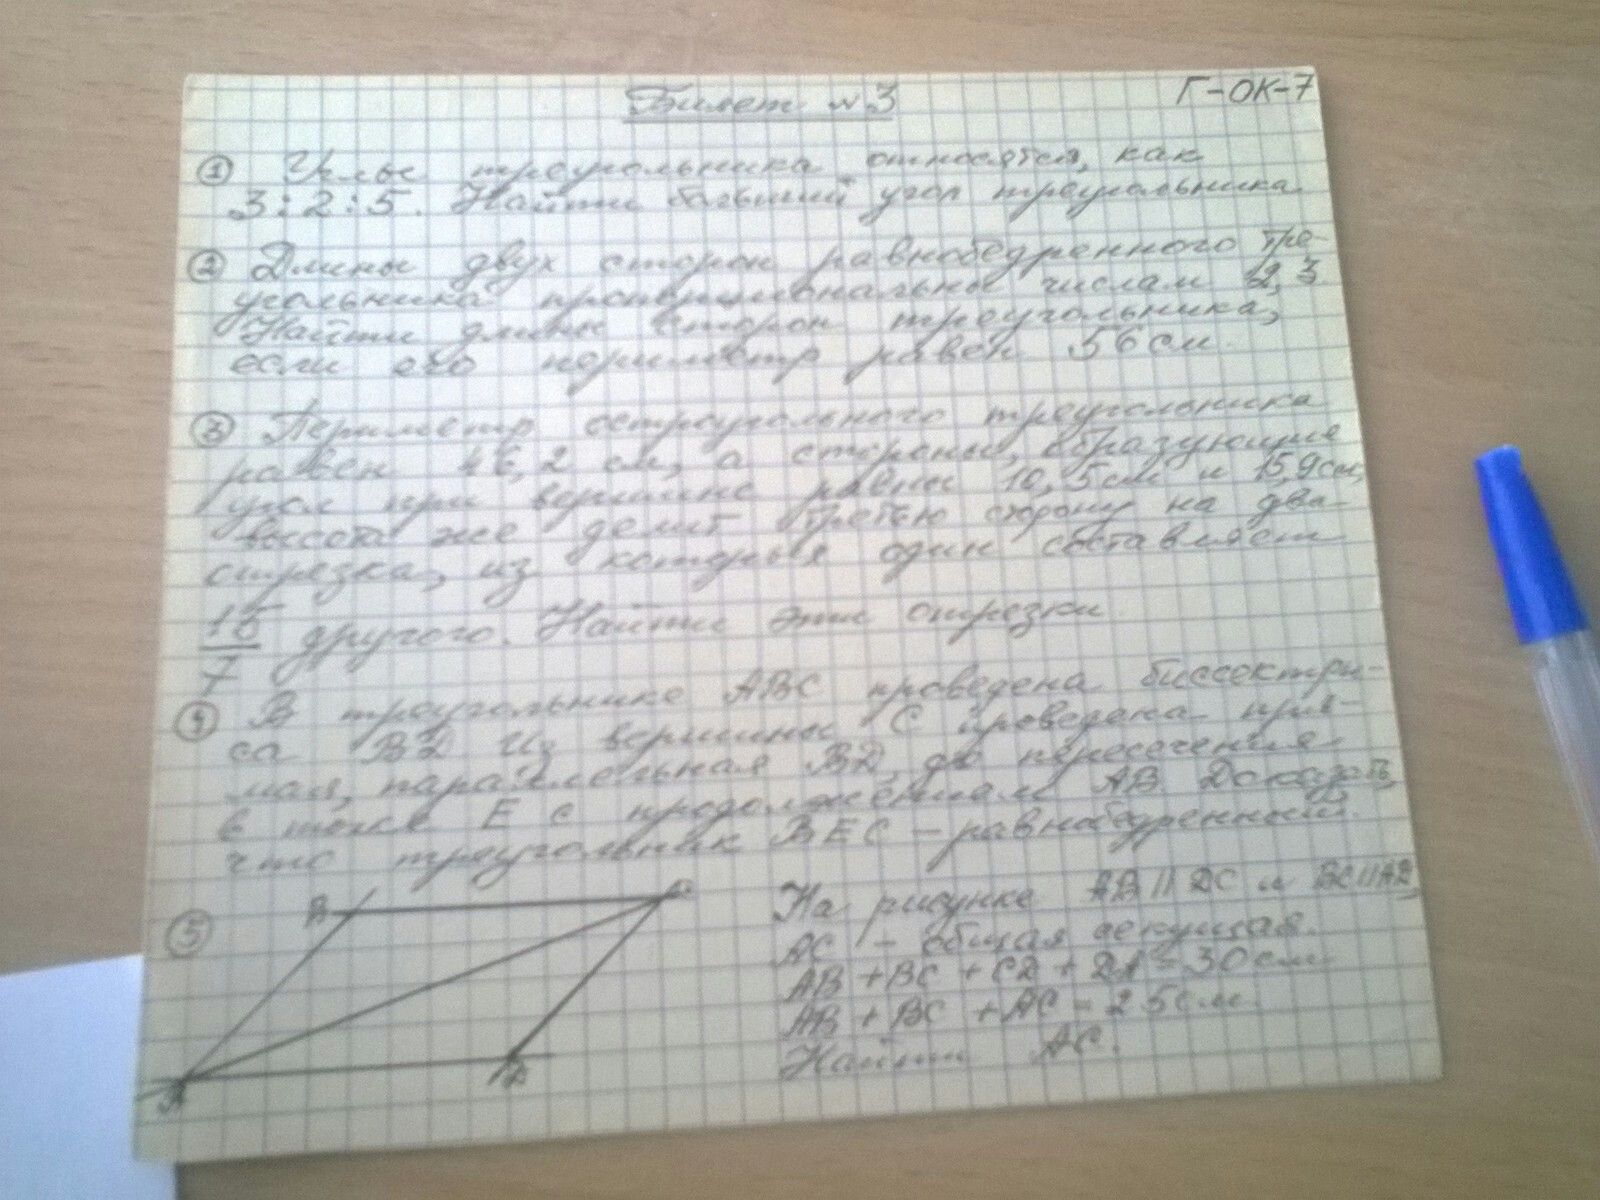 Билет №3
Г-ОК-7
① Углы треугольника относятся, как
3:2:5. Найти больший угол треугольника
② Длины двух сторон равнобедренного тре-
угольника пропорциональны числам 2, 3
Найти длины сторон треугольника,
если его периметр равен 56 см.
③ Периметр остроугольного треугольника
равен 46,2 см, а стороны, образующие
угол при вершине равны 10,5 см и 15,9 см,
высота же делит третью сторону на два
отрезка, из которых один составляет
15/7 другого. Найти эти отрезки
④ В треугольнике ABC проведена биссектри-
са BD. Из вершины C проведена пря-
мая, параллельная BD, до пересечения
в точке E с продолжением AB. Доказать,
что треугольник BEC – равнобедренный.
⑤ На рисунке AB || DC и BC || AD,
AC – общая секущая.
AB + BC + CD + DA = 30 см
AB + BC + AC = 25 см
Найти AC.
B
C
A
D